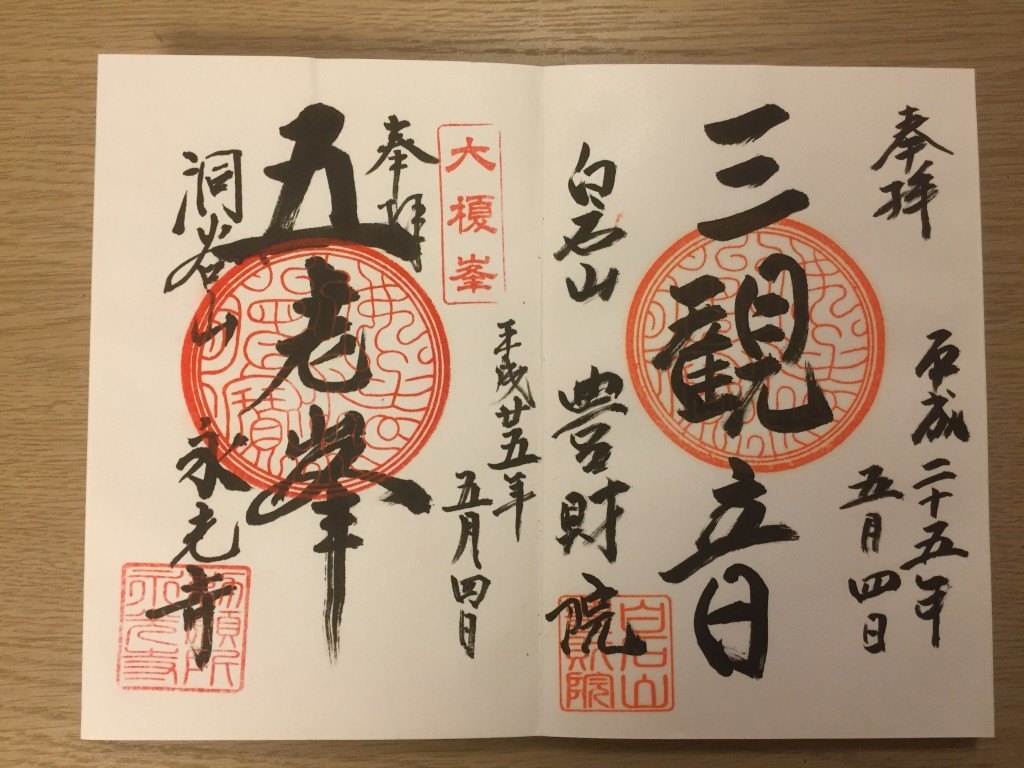 奉拝
平成二十五年
五月四日
三観音
白石山 豊財院
白石山
大榎峯
奉拝
平成廿五年
五月四日
五老峯
洞谷山 永光寺
勅願所
永光寺